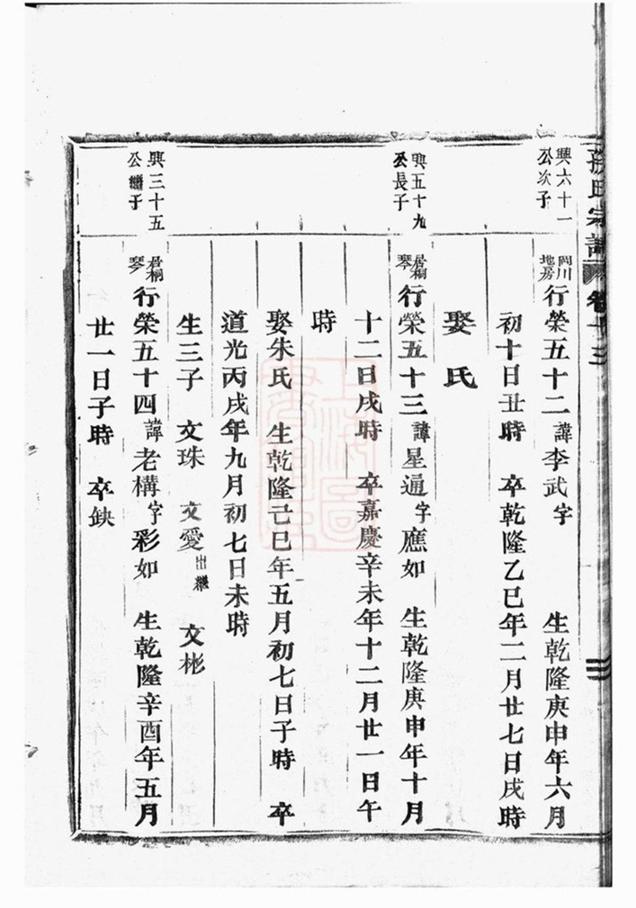 孫氏宗譜 卷十三
興六十一公次子
岡川地房 行榮五十二 諱李武 字 生乾隆庚申年六月
初十日丑時 卒乾隆乙巳年二月廿七日戌時
娶 氏
興五十九公長子
君桐琴 行榮五十三 諱星通 字應如 生乾隆庚申年十月
十二日戌時 卒嘉慶辛未年十二月廿一日午
時
娶朱氏 生乾隆己巳年五月初七日子時 卒
道光丙戌年九月初七日未時
生三子 文珠 文愛出繼 文彬
興三十五公繼子
君桐琴 行榮五十四 諱老構 字彩如 生乾隆辛酉年五月
廿一日子時 卒缺